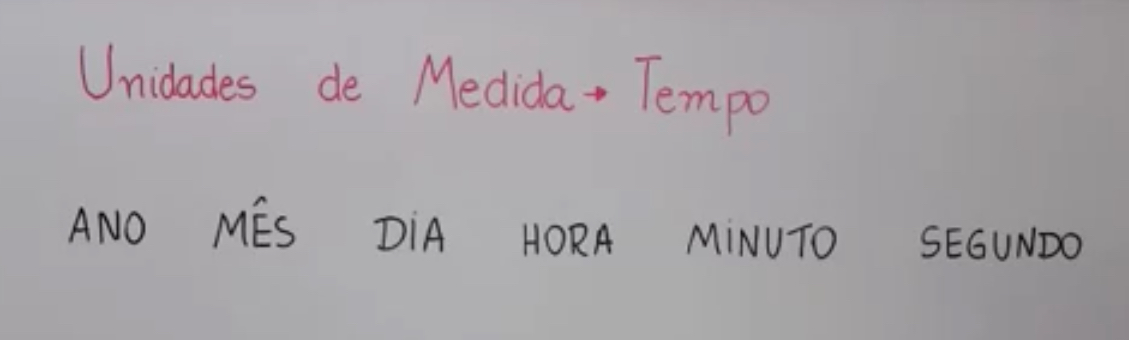 Unidades de Medida → Tempo
ANO MÊS DIA HORA MINUTO SEGUNDO